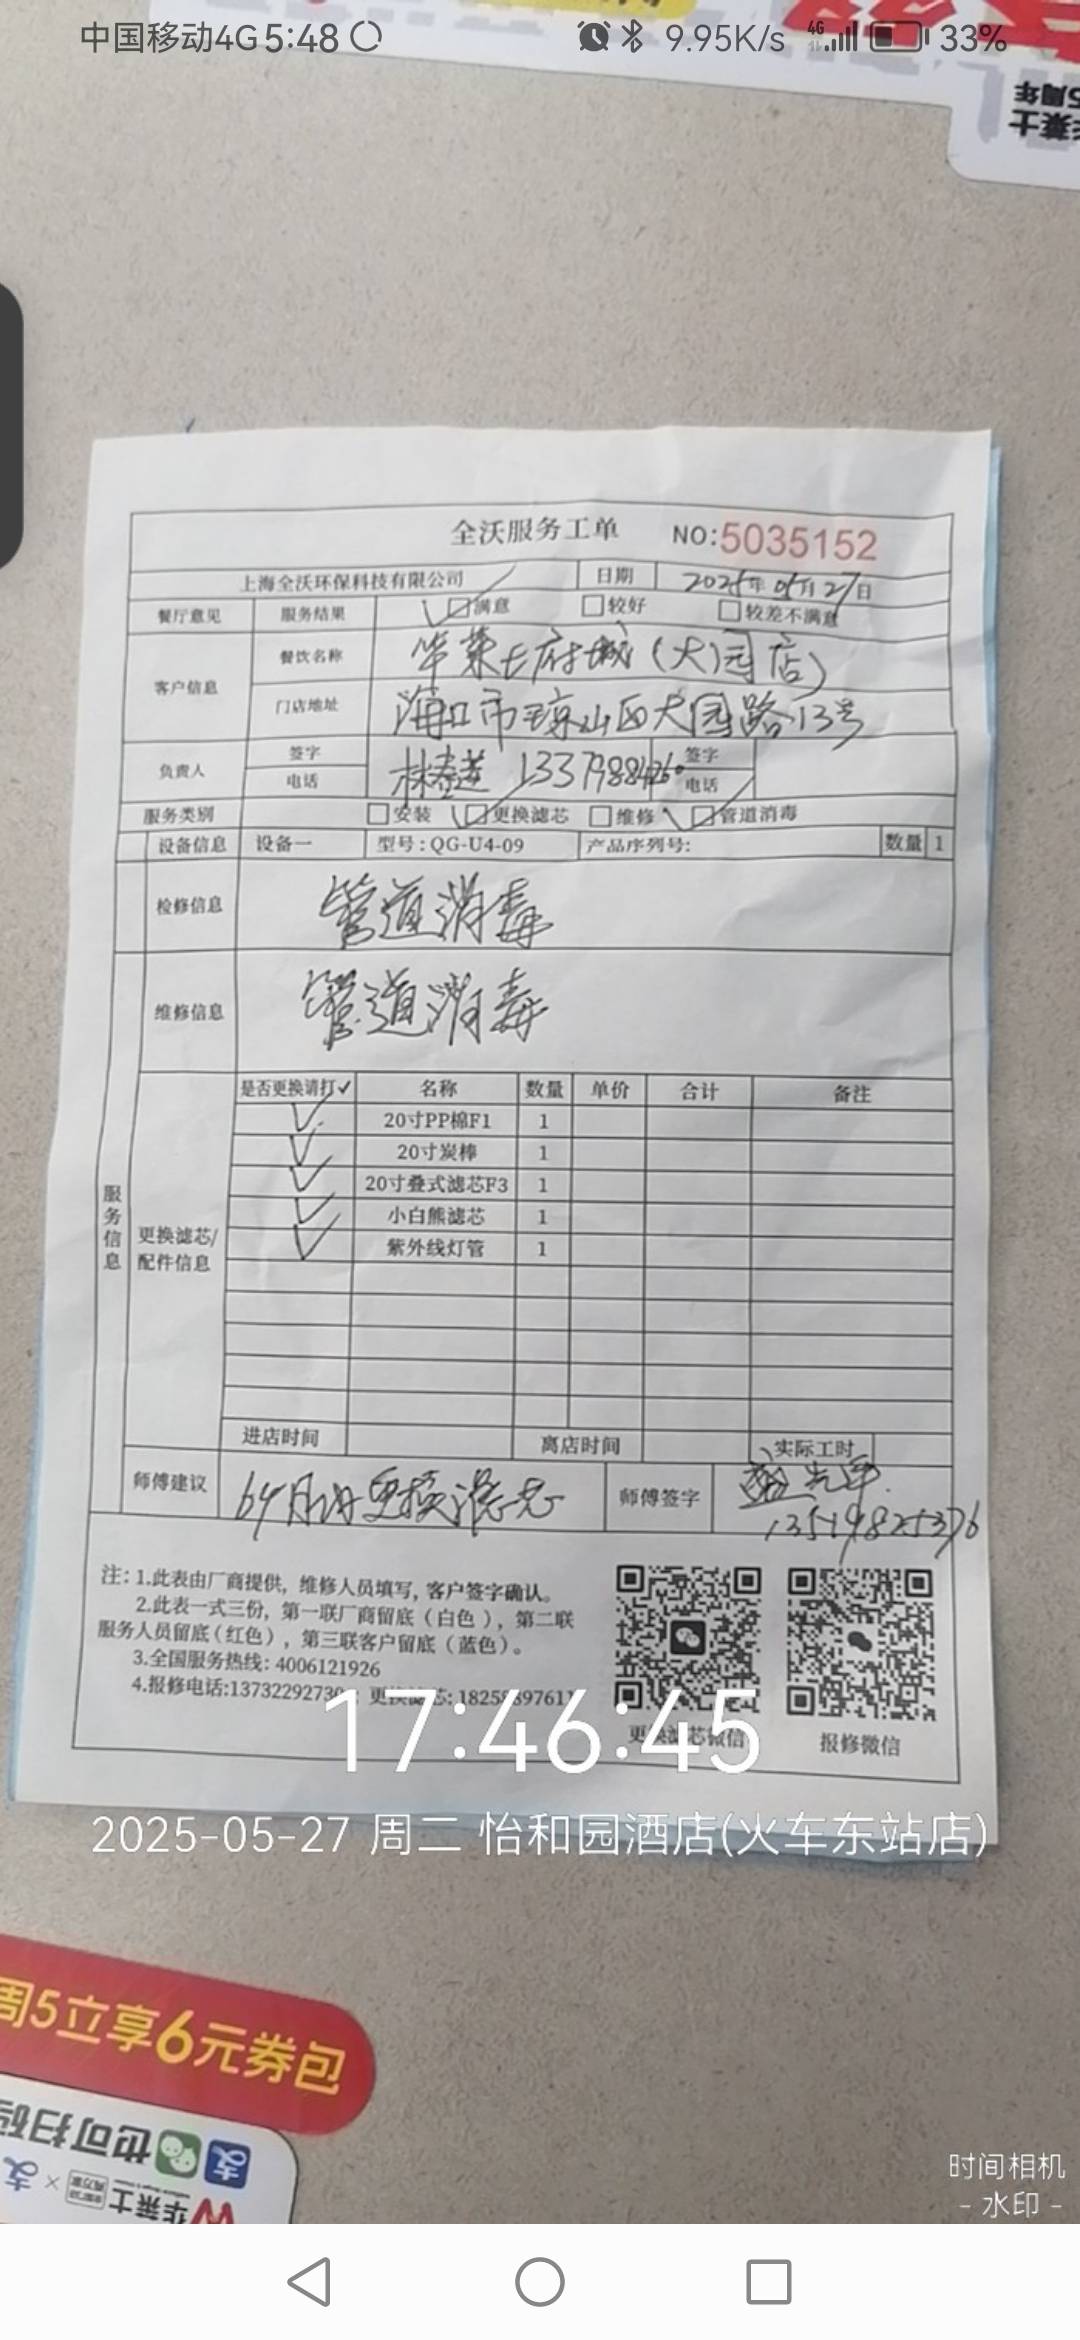 中国移动4G 5:48 9.95K/s 4G 33%
5周年
华莱士
全沃服务工单 NO:5035152
上海全沃环保科技有限公司 日期 2025年05月27日
餐厅意见 服务结果 满意 较好 较差不满意
客户信息 餐饮名称 华莱士府城(大园店)
门店地址 海口市琼山区大园路13号
负责人 签字 电话 签字 电话
服务类别 安装 更换滤芯 维修 管道消毒
设备信息 设备一 型号:QG-U4-09 产品序列号: 数量 1
检修信息 管道消毒
维修信息 管道消毒
服务信息
更换滤芯/配件信息
是否更换请打✓ 名称 数量 单价 合计 备注
✓ 20寸PP棉F1 1
✓ 20寸炭棒 1
✓ 20寸叠式滤芯F3 1
✓ 小白熊滤芯 1
✓ 紫外线灯管 1
进店时间 离店时间 实际工时
师傅建议 更换滤芯 师傅签字
13519825376
注: 1.此表由厂商提供, 维修人员填写, 客户签字确认。
2.此表一式三份, 第一联厂商留底(白色), 第二联
服务人员留底(红色), 第三联客户留底(蓝色)。
3.全国服务热线: 4006121926
4.报修电话:1373229273 更换滤芯:
更换滤芯微信 报修微信
17:46:45
2025-05-27 周二 怡和园酒店(火车东站店)
周5立享6元券包
也可扫码
支 × 华莱士
时间相机
- 水印 -